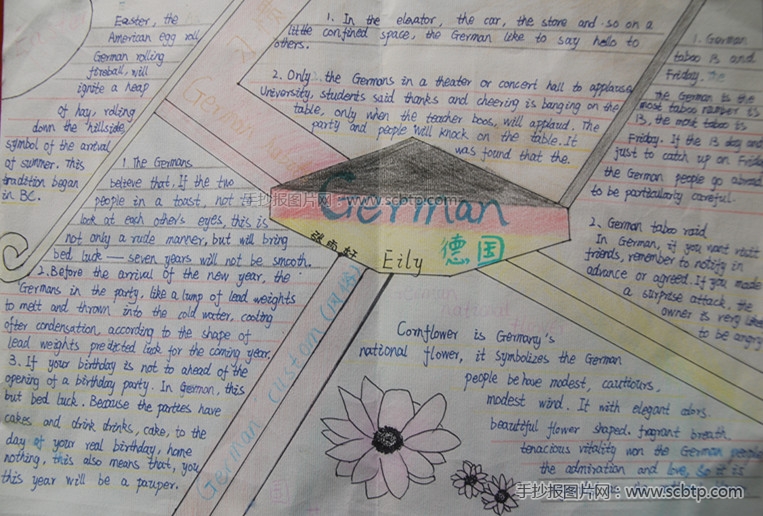 Easter, the
American egg roll,
German rolling
fireball, will
ignite a heap
of hay, rolling
down the hillside,
symbol of the arrival
of summer. This
tradition began
in BC.
1. In the elevator, the car, the store and so on a
little confined space, the German like to say hello to
others.
2. Only the Germans in a theater or concert hall to applause
University, students said thanks and cheering is banging on the
table, only when the teacher boos, will applaud. The
party and people will knock on the table. It
was found that the.
1. German
taboo 13 and
Friday. The
The German is the
most taboo number is
13, the most taboo is
Friday. If the 13 day and
just to catch up on Friday
the German people go abroad
to be particularly careful.
2. German taboo raid
In German, if you want visit
friends, remember to notify in
advance or agreed. If you made
a surprise attack, the
owner is very likely
to be angry
1 The Germans
believe that, If the two
people in a toast, not to
look at each other's eyes, this is
not only a rude manner, but will bring
bed luck — seven years will not be smooth.
2. Before the arrival of the new year, the
Germans in the party, like a lump of lead weights
to melt and thrown into the cold water, cooling
after condensation, according to the shape of
lead weights predicted luck for the coming year.
3. If your birthday is not to ahead of the
opening of a birthday party. In German, this
but bed luck. Because the parties have
cakes and drink drinks, cake, to the
day of your real birthday, home
nothing, this also means that, you
this year will be a pauper.
手抄报图片网：www.scbtp.com
German
德国
Eily
German custom (风俗)
German
national
flower
Cornflower is Germany's
national flower, it symbolizes the German
people behave modest, cautiours,
modest wind. It with elegant colors.
beautiful flower shaped. fragrant breath
tenacious vitality won the German people
the admiration and love, so it is
手抄报图片网：www.scbtp.com